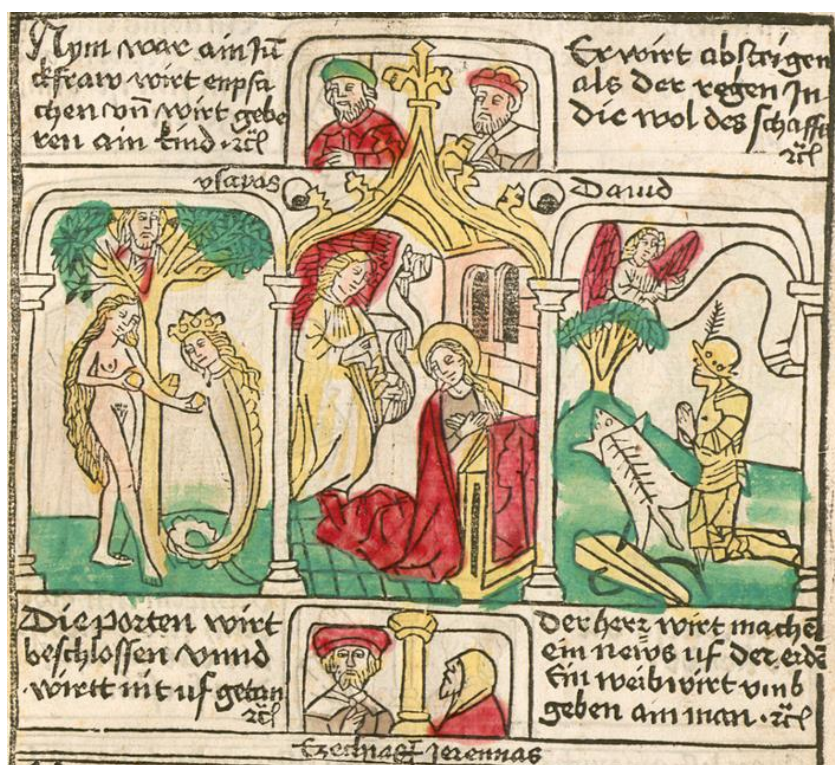 Nym war ain Jū
ckfraw wirt enpfa
chen vn̄ wirt gebe
ren ain kind · ꝛcͣ
Er wirt absteigen
als der regen Jn
die wol des schaffs
ꝛcͣ
ysayas
Dauid
Die porten wirt
beschlossen vnnd
wirtt nit uf getan
ꝛcͣ
Der herr wirt machē
ein neẅs uf der erdē
Ein weib wirt vmb
geben ain man · ꝛcͣ
Jeremias